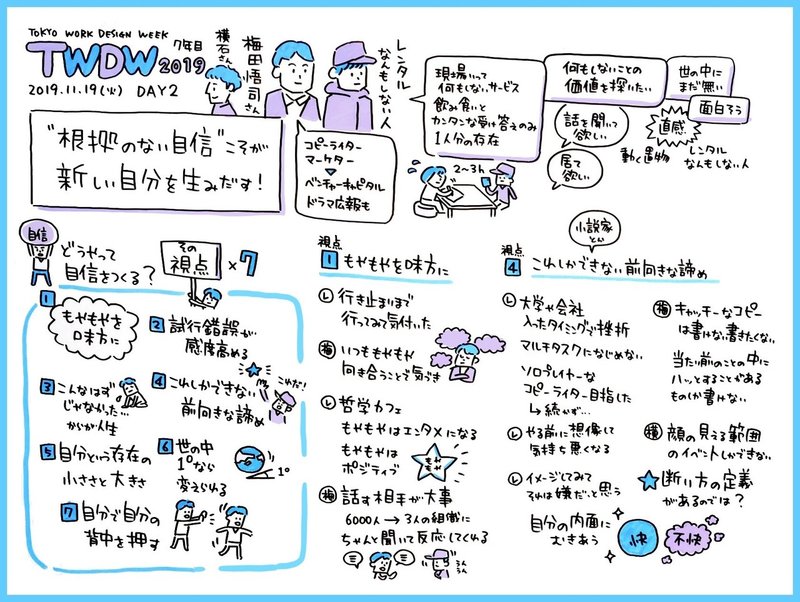 TOKYO WORK DESIGN WEEK
TWDW 2019
7年目
2019.11.19(火) DAY2
横石さん
梅田悟司さん
レンタル
なんもしない人
"根拠のない自信"こそが
新しい自分を生みだす!
コピーライター
マーケター
ベンチャーキャピタル
ドラマ広報も
現場いって
何もしないサービス
飲み食いと
カンタンな受け答えのみ
1人分の存在
2~3h
何もしないことの
価値を探りたい
世の中に
まだ無い
面白ろう
話を聞いて
欲しい
居て
欲しい
直感
動く置物
レンタル
なんもしない人
自信
どうやって
自信をつくる?
その
視点
×7
1
もやもやを
味方に
2 試行錯誤が
感度高める
3 こんなはず
じゃなかった…
からが人生
4 これしかできない
前向きな諦め
これだ!
5 自分という存在の
小ささと大きさ
6 世の中
1°なら
変えられる
1°
7 自分で自分の
背中を押す
視点
1 もやもやを味方に
レ 行き止まりまで
行ってみて気付いた
梅 いつももやもや
向き合うことで気づき
レ 哲学カフェ
もやもやはエンタメになる
もやもやは
ポジティブ
もや
もや
梅 話す相手が大事
6000人→3人の組織に
ちゃんと聞いて反応してくれる
うんうん
小説家
とか
視点
4 これしかできない前向きな諦め
レ 大学や会社
入ったタイミングで挫折
マルチタスクになじめない
ソロプレイヤーな
コピーライター目指した
↳続かず…
レ やる前に想像して
気持ち悪くなる
レ イメージしてみて
それは嫌だっと思う
自分の内面に
むきあう
快
不快
梅 キャッチーなコピー
は書けない書きたくない
当たり前のことの中に
ハッとすることがある
ものしか書けない
横 顔の見える範囲
のイベントしかできない
★断い方の定義
があるのでは?